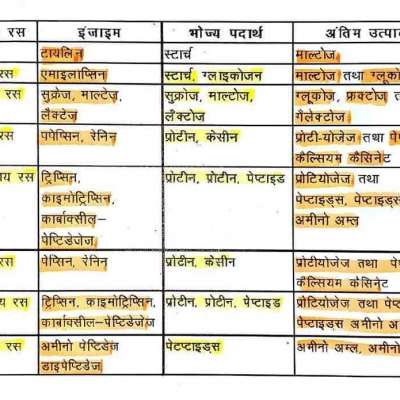 रस इंजाइम भोज्य पदार्थ अंतिम उत्पा
टायलिन स्टार्च माल्टोज
रस एमाइलाप्सिन स्टार्च, ग्लाइकोजन माल्टोज तथा ग्लूको
रस सुक्रेज, माल्टेज, सुक्रोज, माल्टोज, ग्लूकोज, फ्रक्टोज त
लैक्टेज लैक्टोज गैलेक्टोज
रस पपेप्सिन, रेनिन प्रोटीन, केसीन प्रोटी-योजेज तथा पे
कैल्सियम कैसिनेट
य रस ट्रिप्सिन, प्रोटीन, प्रोटीन, पेप्टाइड प्रोटियोजेज तथा
काइमोट्रिप्सिन, पेप्टाइड्स, पेप्टाइड्स
कार्बाक्सील– अमीनो अम्ल
पेप्टिडेजेज
रस पेप्सिन, रेनिन प्रोटीन, केसीन प्रोटीयोजेज तथा पे
कैल्सियम कैसिनेट
य रस ट्रिप्सिन, काइमोट्रिप्सिन, प्रोटीन, प्रोटीन, पेप्टाइड प्रोटियोजेज तथा पेप्ट
कार्बाक्सील–पेप्टिडेजेज पेप्टाइड्स अमीनो अ
रस अमीनो पेप्टिडेज पेटप्टाइड्स अमीनो अम्ल, अमीनो
डाइपेप्टिडेज